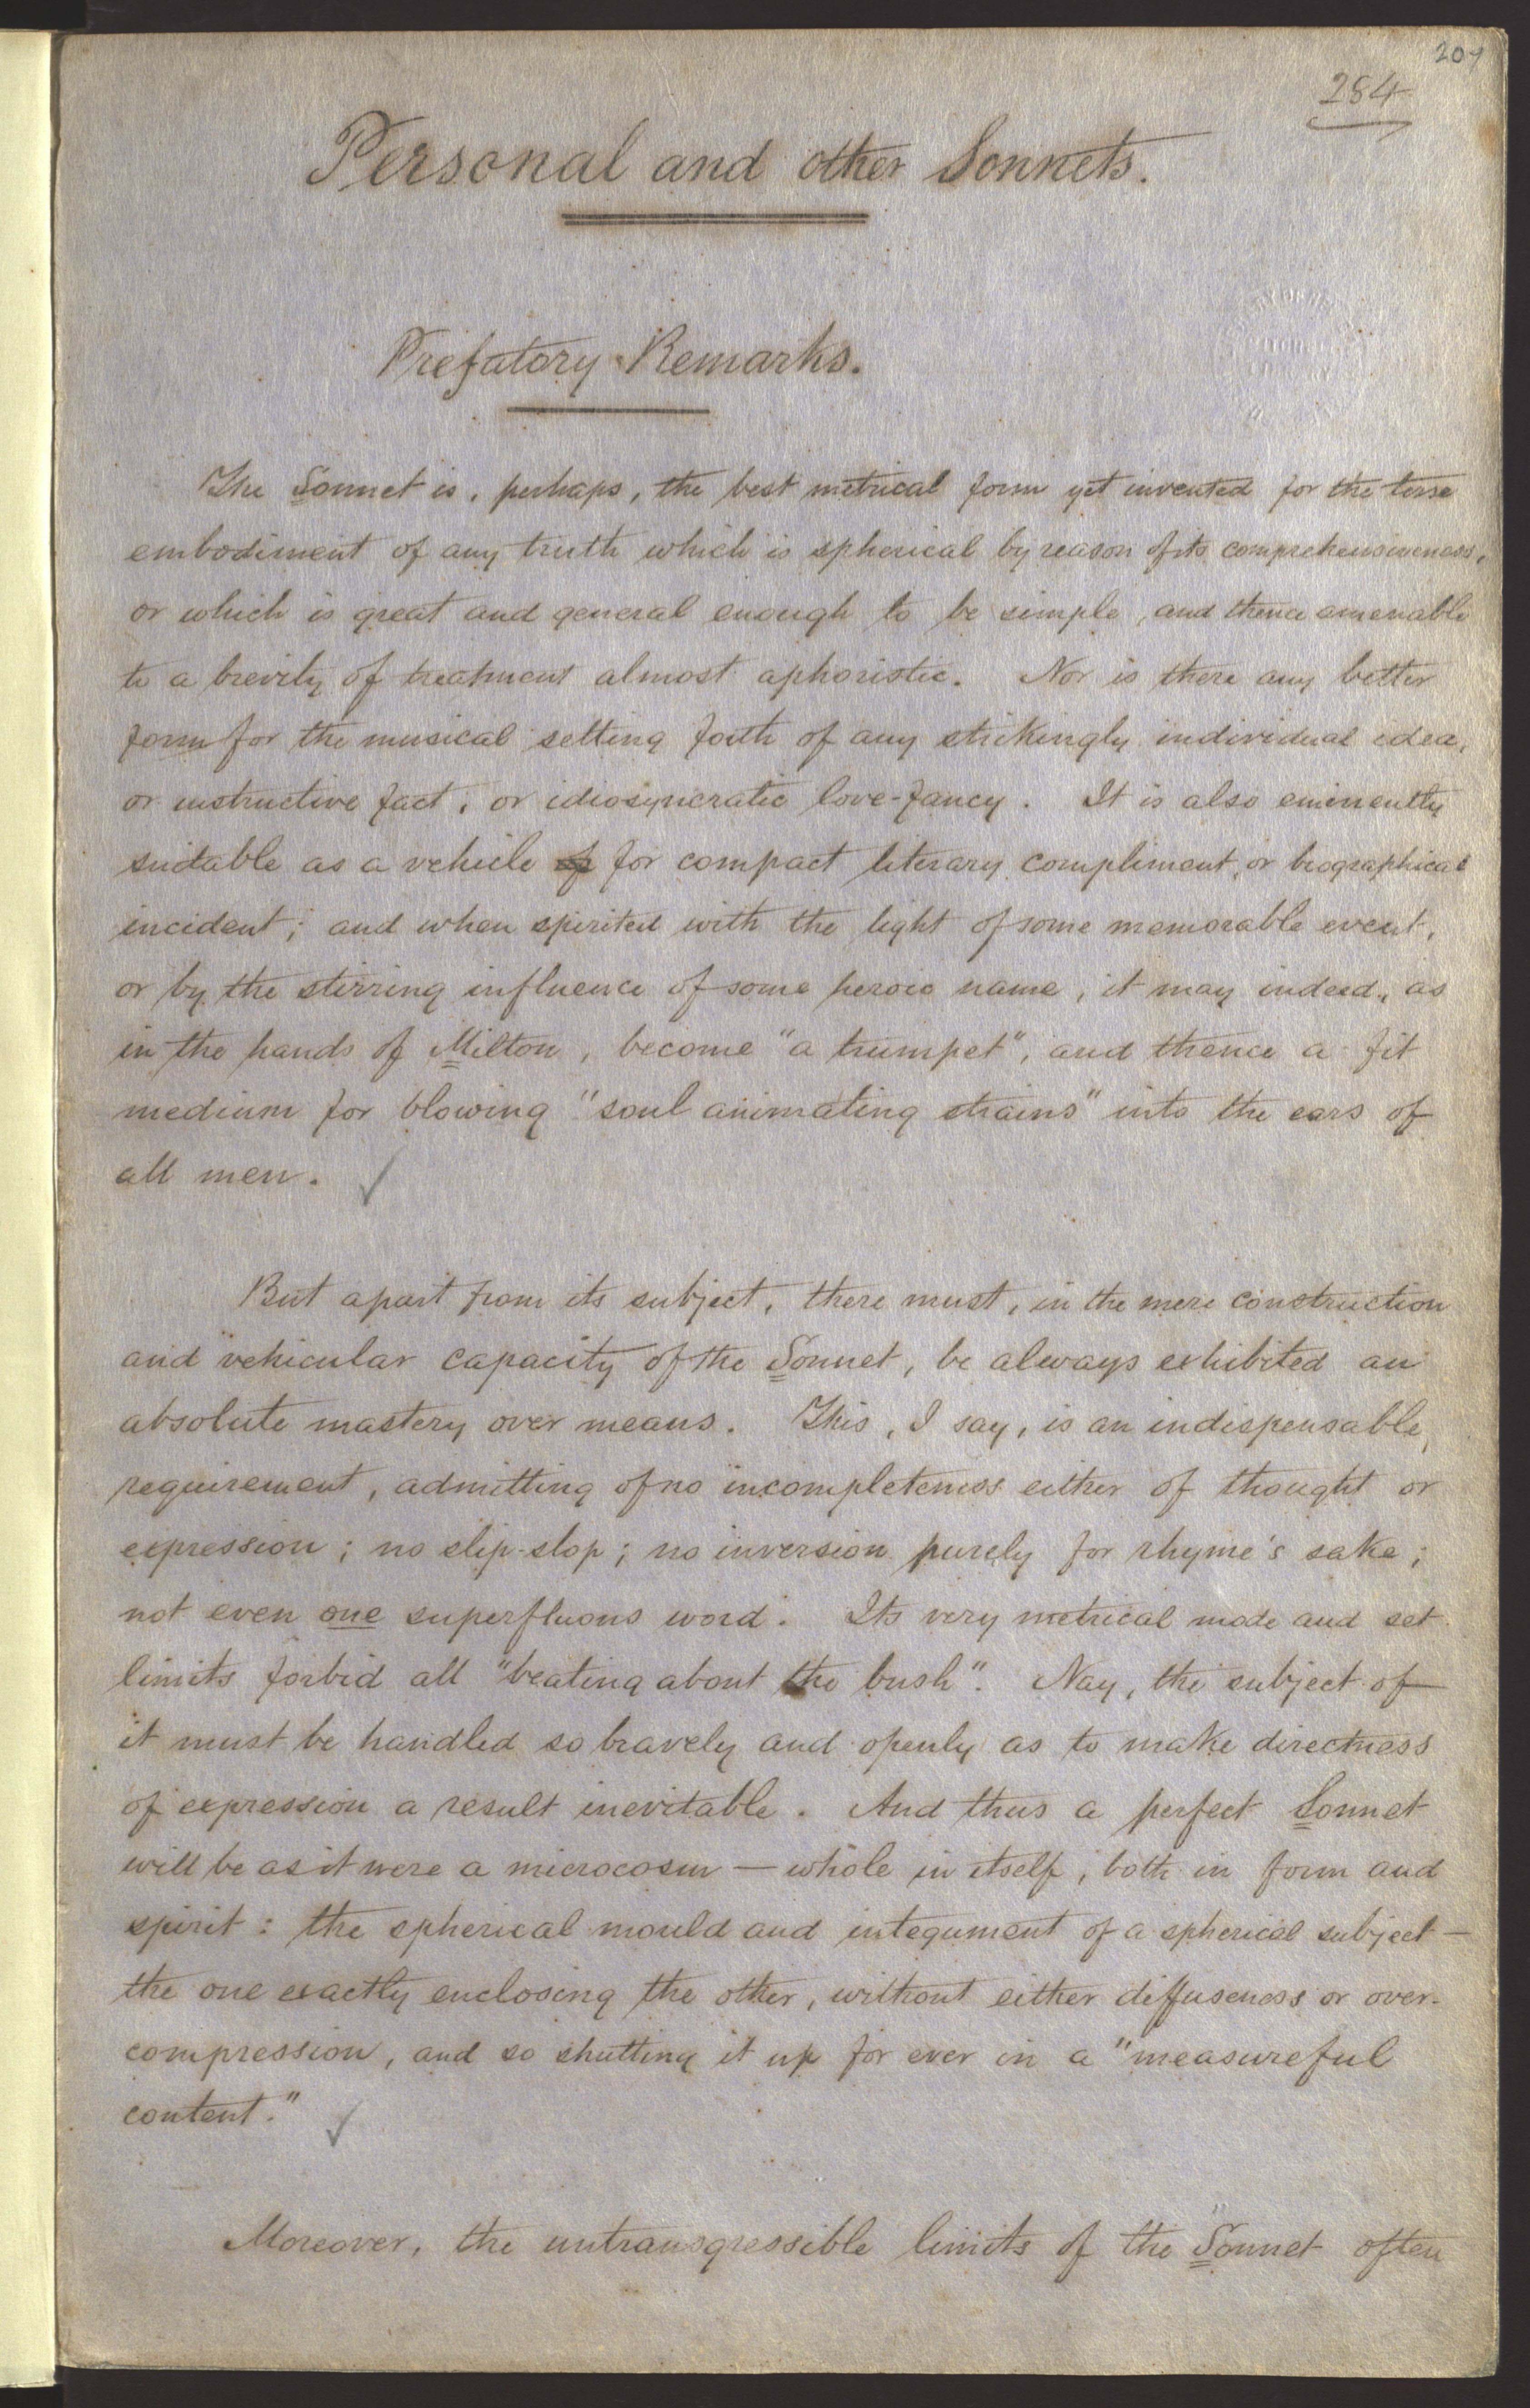 209
284
Personal and other Sonnets.
Prefatory Remarks.
The Sonnet is, perhaps, the best metrical form yet invented for the terse
embodiment of any truth which is spherical by reason of its comprehensiveness,
or which is great and general enough to be simple, and thence amenable
to a brevity of treatment almost aphoristic. Nor is there any better
form for the musical setting forth of any strikingly individual idea,
or instructive fact, or idiosyncratic love-fancy. It is also eminently
suitable as a vehicle of for compact literary compliment, or biographical
incident; and when spirited with the light of some memorable event,
or by the stirring influence of some heroic name, it may indeed, as
in the hands of Milton, become "a trumpet", and thence a fit
medium for blowing "soul animating strains" into the ears of
all men. ✓
But apart from its subject, there must, in the mere construction
and vehicular capacity of the Sonnet, be always exhibited an
absolute mastery over means. This, I say, is an indispensable
requirement, admitting of no incompleteness either of thought or
expression; no slip-slop; no inversion purely for rhyme's sake;
not even one superfluous word. Its very metrical mode and set
limits forbid all "beating about the bush". Nay, the subject of
it must be handled so bravely and openly as to make directness
of expression a result inevitable. And thus a perfect Sonnet
will be as it were a microcosm — whole in itself, both in form and
spirit: the spherical mould and integument of a spherical subject —
the one exactly enclosing the other, without either diffuseness or over-
compression, and so shutting it up for ever in a "measureful
content." ✓
Moreover, the untransgressible limits of the Sonnet often